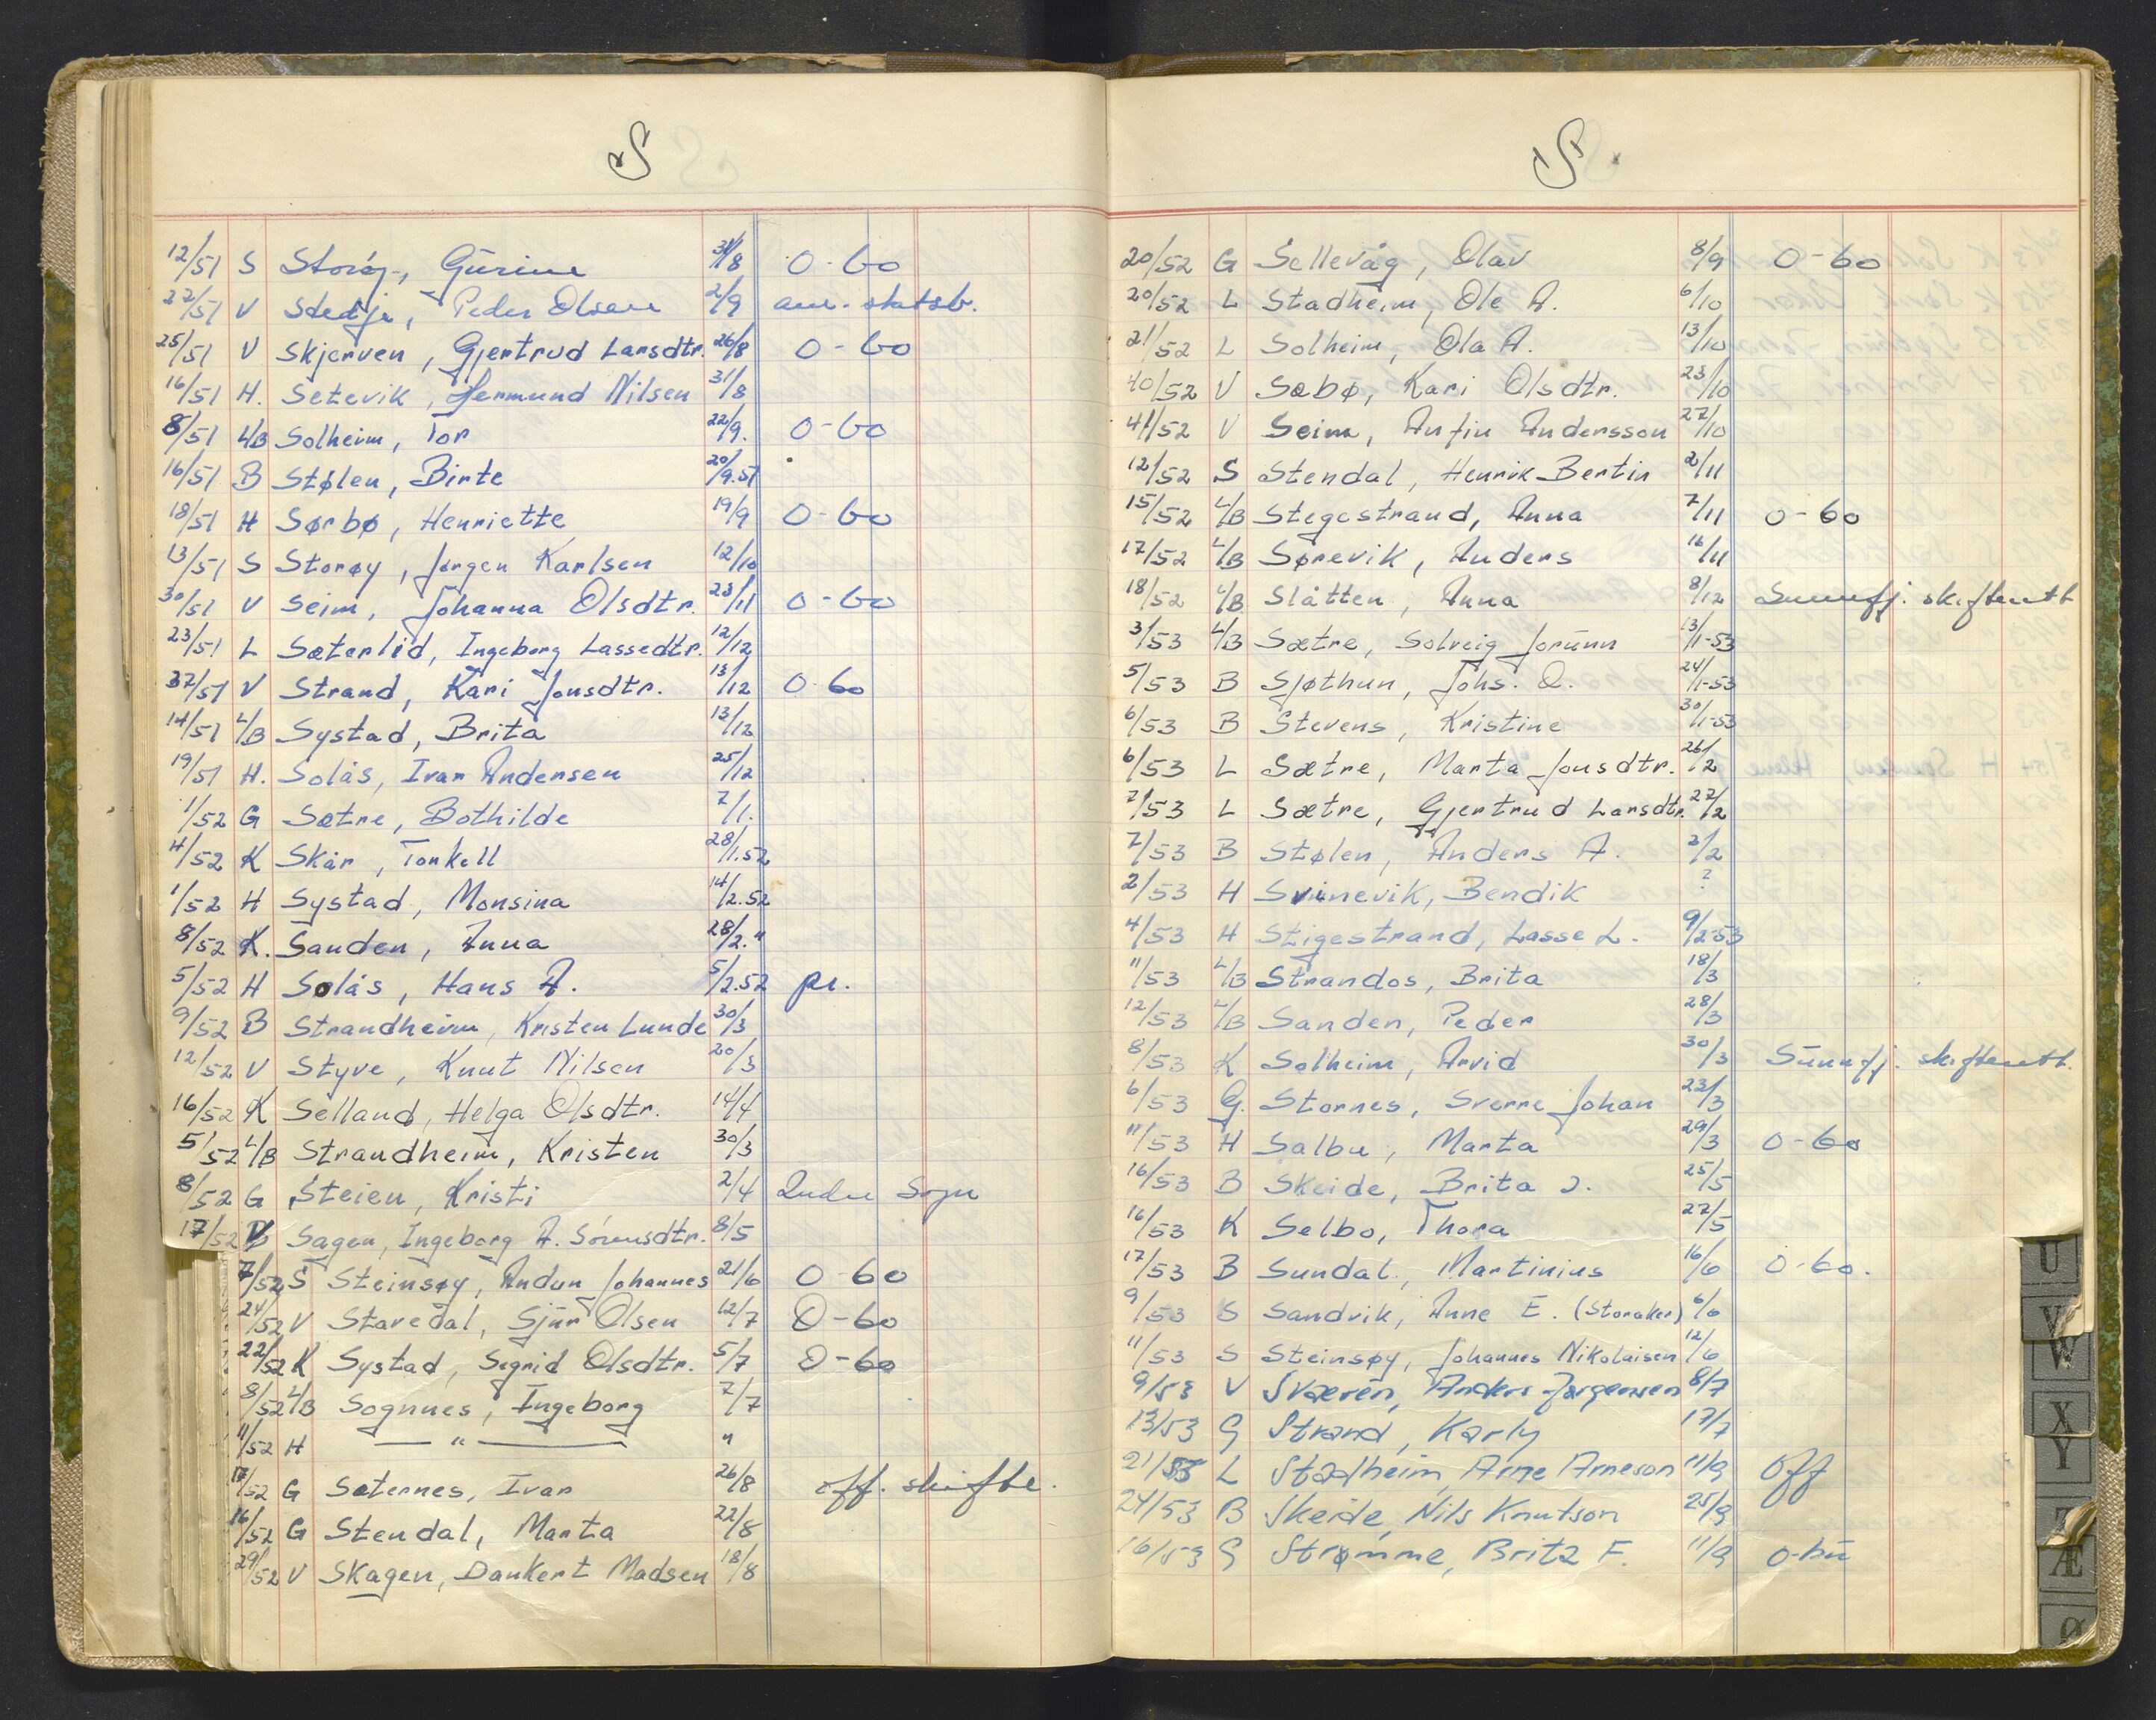 S
12/51 S Storøy, Gurine 31/8 0-60
22/51 V Stedje, Peder Olsen 2/9 anm. statsb.
25/51 V Skjerven, Gjertrud Larsdtr. 26/8 0-60
16/51 H. Setevik, Jermund Nilsen 31/8
8/51 L/B Solheim, Tor 22/9. 0-60
16/51 B Stølen, Birte 20/9.51
18/51 H Sørbø, Henriette 19/9 0-60
13/51 S Storøy, Jørgen Karlsen 12/10
30/51 V Seim, Johanna Olsdtr. 23/11 0-60
23/51 L Sæterlid, Ingeborg Lassedtr. 12/12
37/51 V Strand, Kari Jonsdtr. 13/12 0-60
14/51 L/B Systad, Brita 13/12
19/51 H. Solås, Ivar Andersen 25/12
1/52 G Sætre, Bothilde 7/1.
4/52 K Skår, Torkell 28/1.52
1/52 H Systad, Monsina 14/2.52
8/52 K. Sanden, Anna 28/2."
5/52 H Solås, Hans A. 5/2.52 pr.
9/52 B Strandheim, Kristen Lunde 30/3
12/52 V Styve, Knut Nilsen 20/3
16/52 K Selland, Helga Olsdtr. 14/4
5/52 L/B Strandheim, Kristen 30/3
8/52 G Steien, Kristi 2/4 Indre Sogn
17/52 Sagen, Ingeborg A. 8/5
7/52 S Steinsøy, Andun Johannes 21/6 0-60
24/52 V Stavedal, Sjur Olsen 12/7 0-60
22/52 K Systad, Sigrid Olsdtr. 5/7 0-60
8/52 L/B Sognnes, Ingeborg 7/7
11/52 H — " — "
17/52 G Sæternes, Ivar 26/8 off. skifte.
16/52 G Stendal, Marta 22/8
29/52 V Skagen, Dankert Madsen 18/8
S
20/52 G Sellevåg, Olav 8/9 0-60
20/52 L Stadheim, Ole A. 6/10
21/52 L Solheim, Ola A. 13/10
40/52 V Sæbø, Kari Olsdtr. 23/10
41/52 V Seim, Anfin Andersson 27/10
12/52 S Stendal, Henrik Bertin 2/11
15/52 L/B Stegestrand, Anna 7/11 0-60
17/52 L/B Sørevik, Anders 16/11
18/52 L/B Slåtten, Anna 8/12 Sunnfj. skifterett
3/53 L/B Sætre, Solveig Jorunn 13/1-53
5/53 B Sjøthun, Johs. O. 24/1-53
6/53 B Stevens, Kristine 30/1-53
6/53 L Sætre, Marta Jonsdtr. 26/2
7/53 L Sætre, Gjertrud Larsdtr. 27/2
7/53 B Stølen, Anders A. 3/2
2/53 H Svinevik, Bendik ?
4/53 H Stigestrand, Lasse L. 9/2-53
11/53 L/B Strandos, Brita 18/3
12/53 L/B Sanden, Peder 28/3
8/53 K Solheim, Arvid 30/3 Sunnfj. skifterett.
6/53 G. Stornes, Sverre Johan 23/3
11/53 H Salbu, Marta 29/3 0-60
16/53 B Skeide, Brita J. 25/5
16/53 K Selbo, Thora 27/5
17/53 B Sundal, Martinius 16/6 0-60.
9/53 S Sandvik, Anne E. (Storaker) 6/6
11/53 S Steinsøy, Johannes Nikolaisen 12/6
9/53 V Sværen, Anders Jørgensen 8/7
13/53 G Strand, Karly 17/7
21/53 L Stadheim, Arne Arneson 11/9 Off
24/53 B Skeide, Nils Knutson 25/9
16/53 G Strømme, Brita F. 11/9 0-bu
U
V
W
X
Y
Z
Æ
Ø